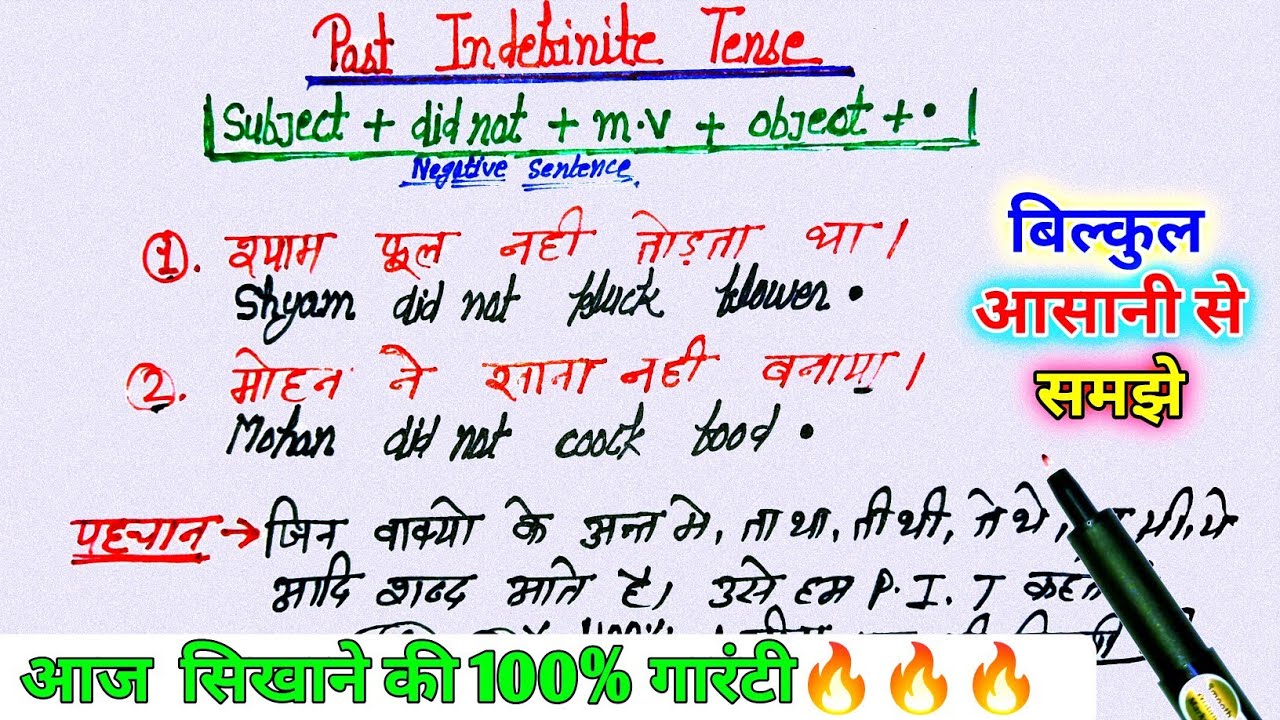 Past Indefinite Tense
Subject + did not + m.v + object + •
Negative Sentence
1. श्याम फूल नही तोड़ता था।
Shyam did not pluck flower.
2. मोहन ने खाना नही बनाया।
Mohan did not coock food.
पहचान → जिन वाक्यो के अन्त मे, ता था, ती थी, ते थे, यी, ये
आदि शब्द आते है, उसे हम P.I.T कहते
100%
बिल्कुल
आसानी से
समझे
आज सिखाने की 100% गारंटी🔥🔥🔥